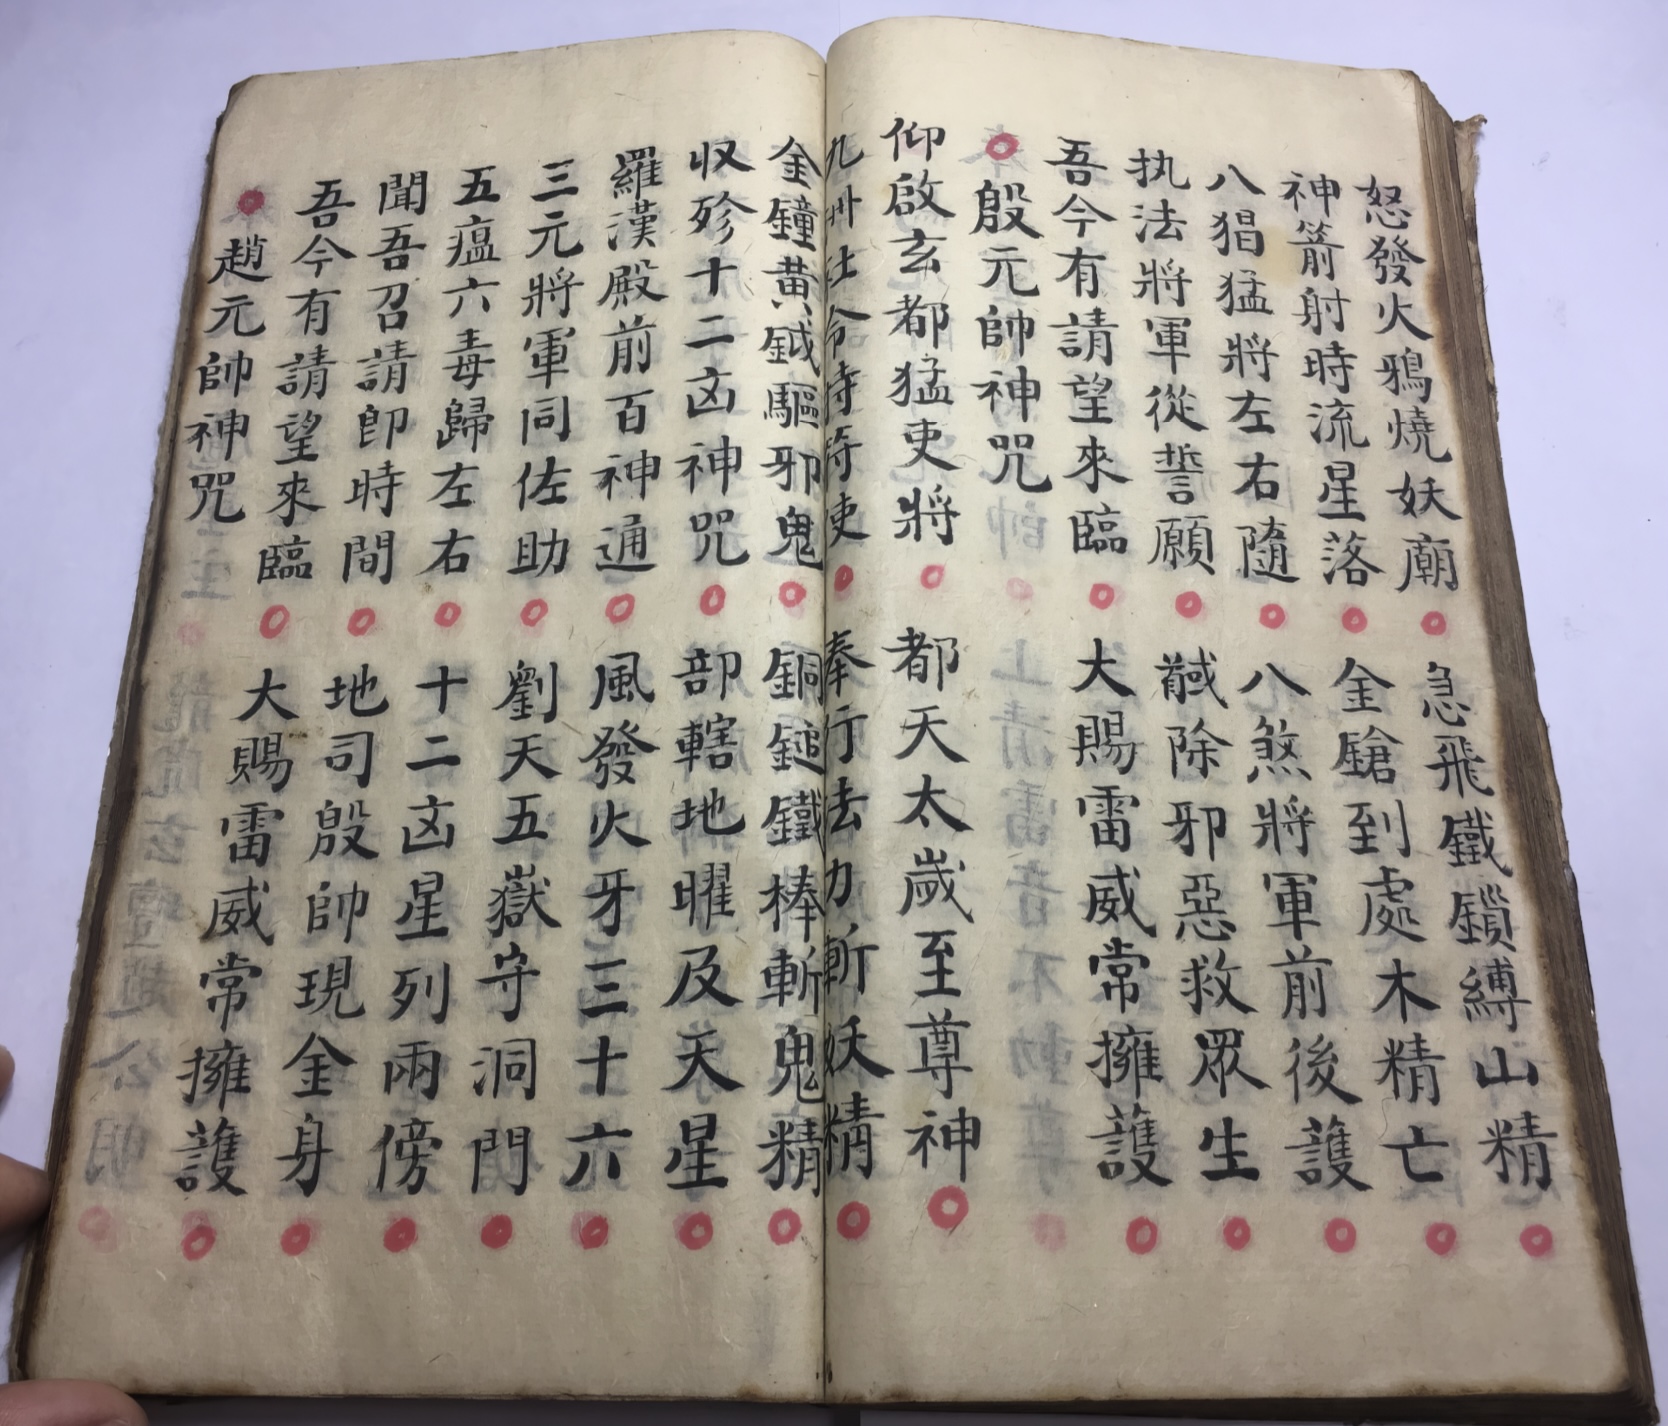 怒發火鴉燒妖廟 急飛鐵鎖縛山精
神箭射時流星落 金鎗到處木精亡
八猖猛將左右隨 八煞將軍前後護
执法將軍從誓願 馘除邪惡救眾生
吾今有請望來臨 大賜雷威常擁護
殷元帥神咒
仰啟玄都猛吏將 都天太歲至尊神
九州社令持符吏 奉行法力斬妖精
金鐘黃鉞驅邪鬼 銅鎚鐵棒斬鬼精
収殄十二凶神咒 部轄地曜及天星
羅漢殿前百神通 風發火牙三十六
三元將軍同佐助 劉天五嶽守洞門
五瘟六毒歸左右 十二凶星列兩傍
聞吾召請即時間 地司殷帥現金身
吾今有請望來臨 大賜雷威常擁護
趙元帥神咒